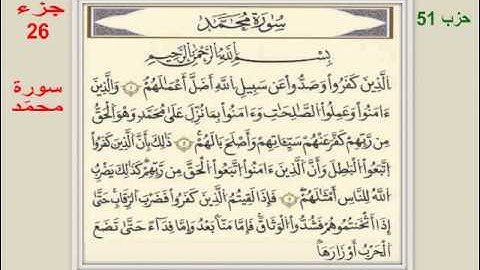 جزء
26
سورة
محمّد
حزب 51
سُورَةُ مُحَمَّد
بِسْمِ ٱللَّهِ ٱلرَّحْمَٰنِ ٱلرَّحِيمِ
ٱلَّذِينَ كَفَرُوا۟ وَصَدُّوا۟ عَن سَبِيلِ ٱللَّهِ أَضَلَّ أَعْمَٰلَهُمْ ۝١ وَٱلَّذِينَ
ءَامَنُوا۟ وَعَمِلُوا۟ ٱلصَّٰلِحَٰتِ وَءَامَنُوا۟ بِمَا نُزِّلَ عَلَىٰ مُحَمَّدٍ وَهُوَ ٱلْحَقُّ
مِن رَّبِّهِمْ كَفَّرَ عَنْهُمْ سَيِّـَٔاتِهِمْ وَأَصْلَحَ بَالَهُمْ ۝٢ ذَٰلِكَ بِأَنَّ ٱلَّذِينَ كَفَرُوا۟
ٱتَّبَعُوا۟ ٱلْبَٰطِلَ وَأَنَّ ٱلَّذِينَ ءَامَنُوا۟ ٱتَّبَعُوا۟ ٱلْحَقَّ مِن رَّبِّهِمْ كَذَٰلِكَ يَضْرِبُ
ٱللَّهُ لِلنَّاسِ أَمْثَٰلَهُمْ ۝٣ فَإِذَا لَقِيتُمُ ٱلَّذِينَ كَفَرُوا۟ فَضَرْبَ ٱلرِّقَابِ حَتَّىٰٓ
إِذَآ أَثْخَنتُمُوهُمْ فَشُدُّوا۟ ٱلْوَثَاقَ فَإِمَّا مَنًّۢا بَعْدُ وَإِمَّا فِدَآءً حَتَّىٰ تَضَعَ
ٱلْحَرْبُ أَوْزَارَهَا